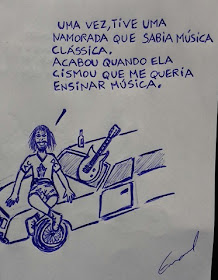 UMA VEZ, TIVE UMA
NAMORADA QUE SABIA MÚSICA
CLÁSSICA.
ACABOU QUANDO ELA
CISMOU QUE ME QUERIA
ENSINAR MÚSICA.